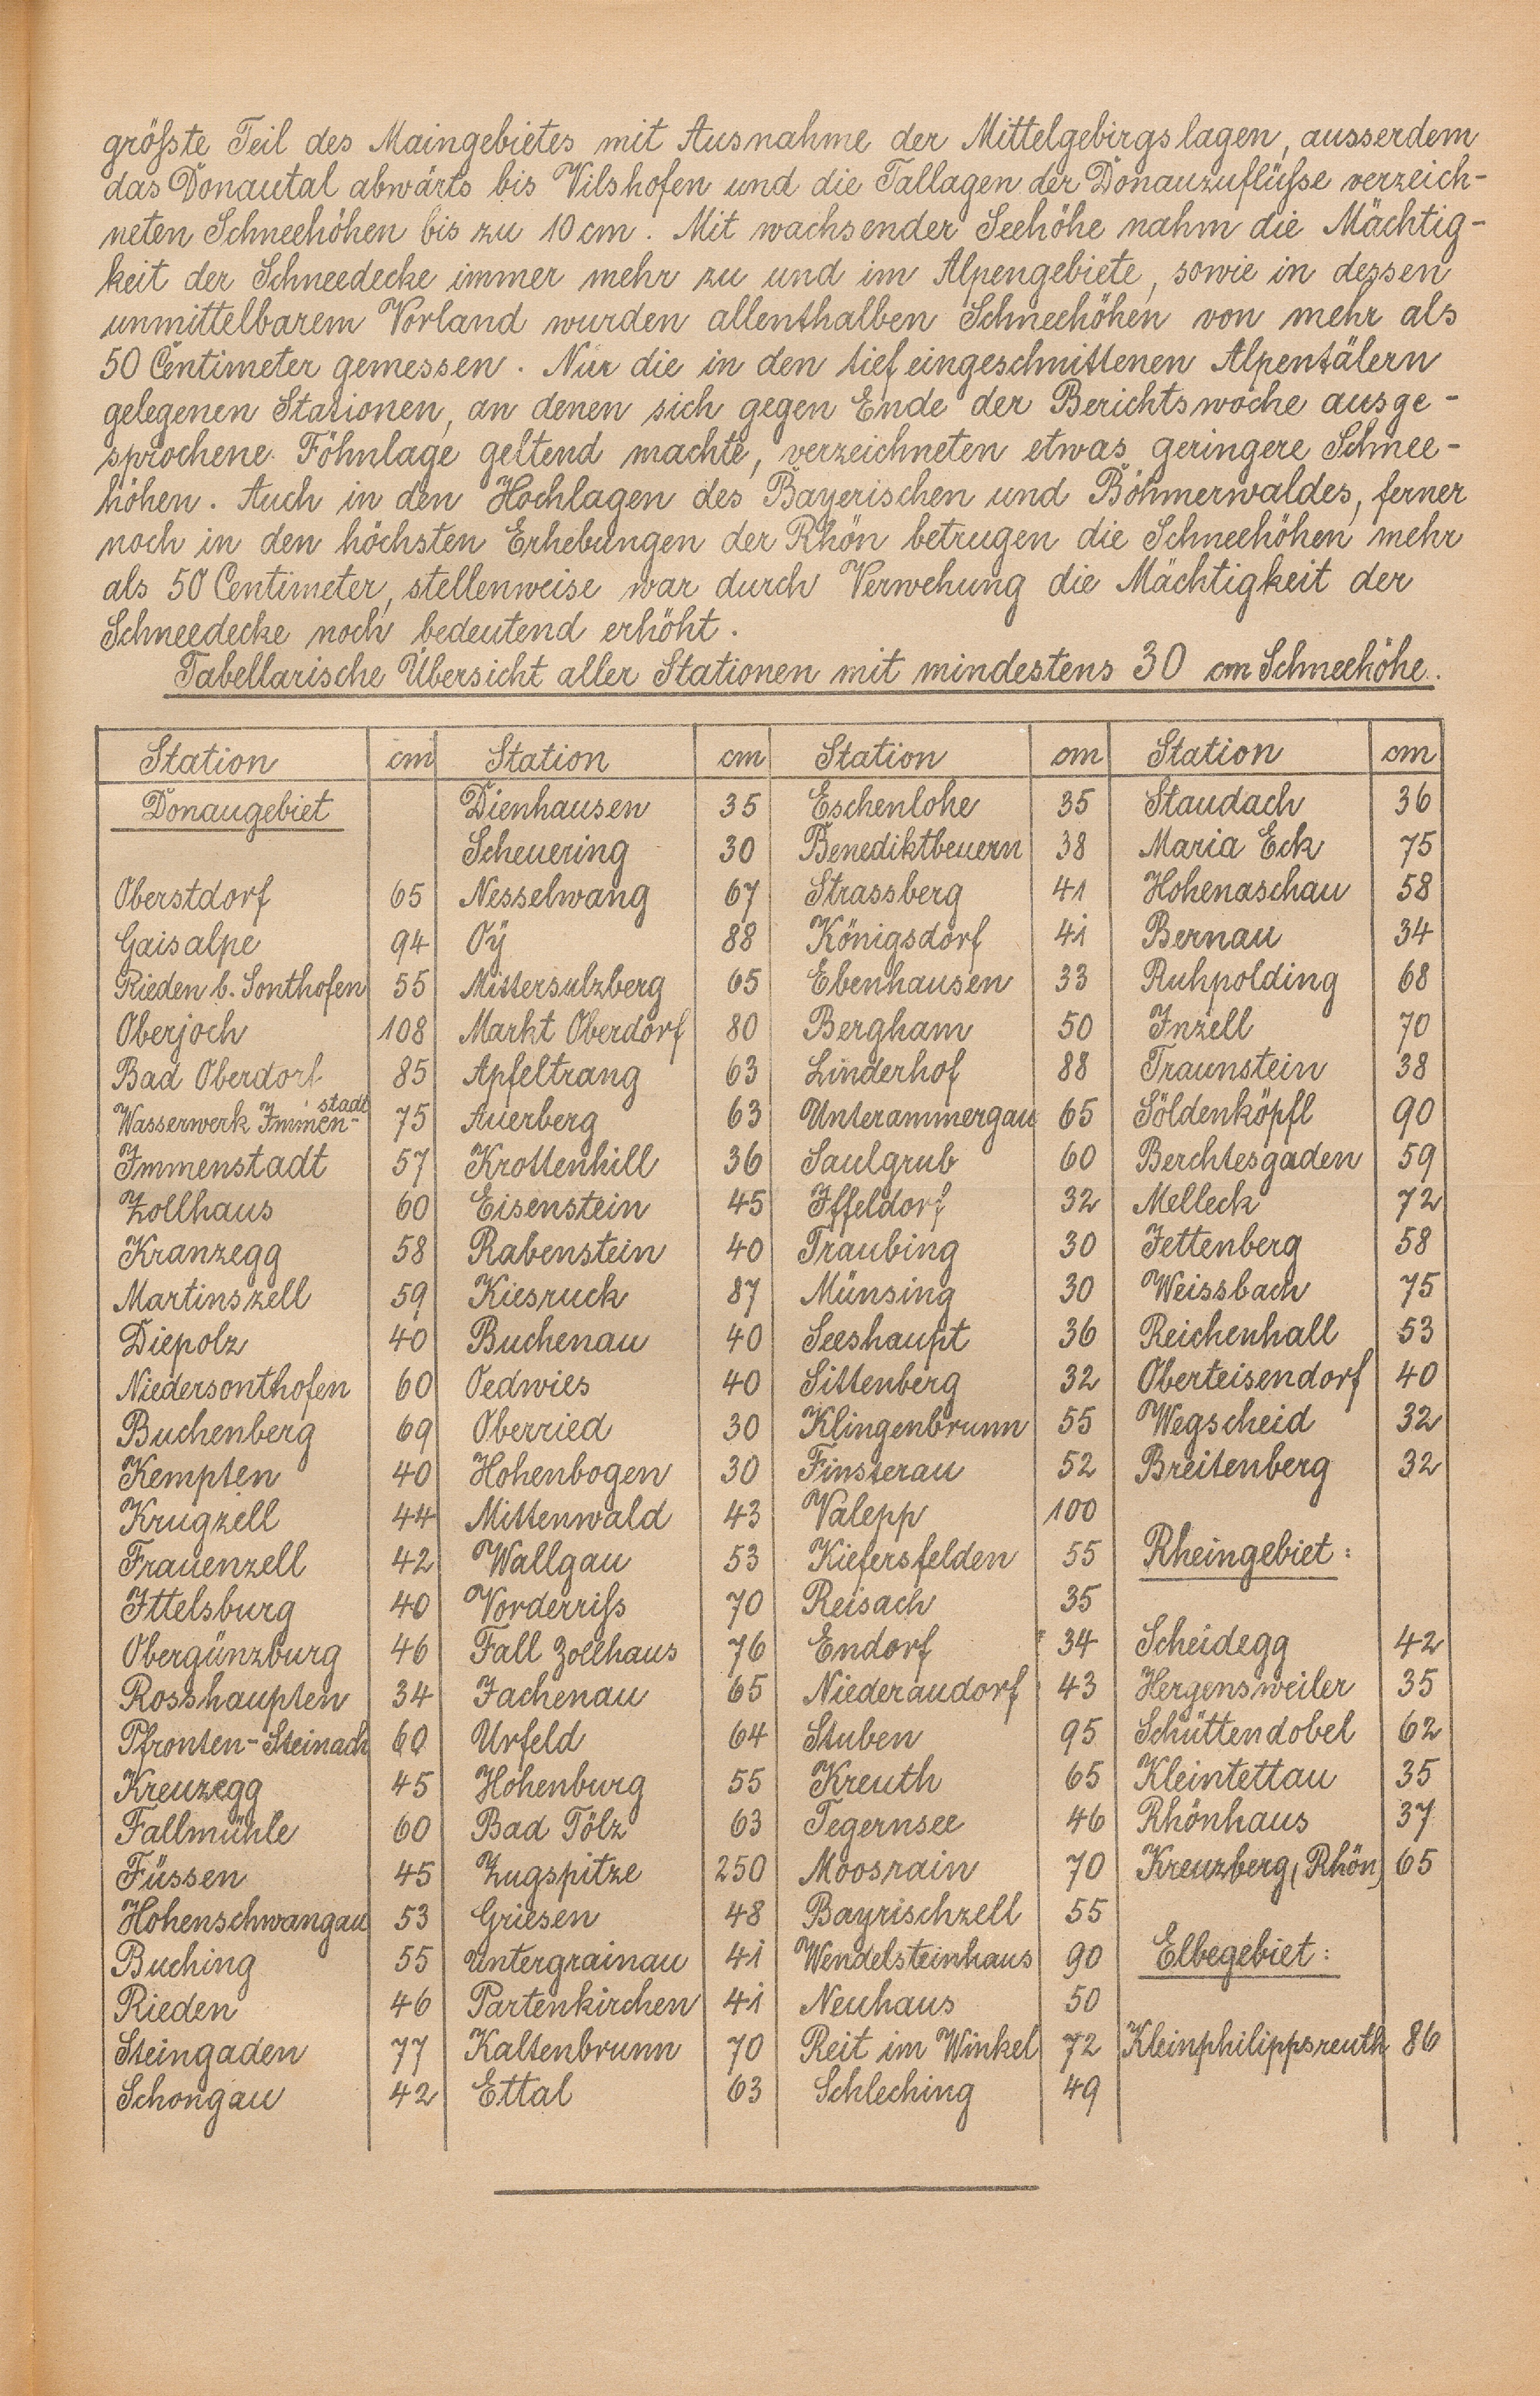 größte Teil des Maingebietes mit Ausnahme der Mittelgebirgslagen, ausserdem
das Donautal abwärts bis Vilshofen und die Tallagen der Donauzuflüße verzeich-
neten Schneehöhen bis zu 10 cm. Mit wachsender Seehöhe nahm die Mächtig-
keit der Schneedecke immer mehr zu und im Alpengebiete, sowie in dessen
unmittelbarem Vorland wurden allenthalben Schneehöhen von mehr als
50 Centimeter gemessen. Nur die in den tief eingeschnittenen Alpentälern
gelegenen Stationen, an denen sich gegen Ende der Berichtswoche ausge-
sprochene Föhnlage geltend machte, verzeichneten etwas geringere Schnee-
höhen. Auch in den Hochlagen des Bayerischen und Böhmerwaldes, ferner
noch in den höchsten Erhebungen der Rhön betrugen die Schneehöhen mehr
als 50 Centimeter, stellenweise war durch Verwehung die Mächtigkeit der
Schneedecke noch bedeutend erhöht.
Tabellarische Übersicht aller Stationen mit mindestens 30 cm Schneehöhe.
Station cm Station cm Station cm Station cm
Donaugebiet Dienhausen 35 Eschenlohe 35 Staudach 36
Scheuering 30 Benediktbeuern 38 Maria Eck 75
Oberstdorf 65 Nesselwang 67 Strassberg 41 Hohenaschau 58
Gaisalpe 94 Oÿ 88 Königsdorf 41 Bernau 34
Rieden b. Sonthofen 55 Mittersulzberg 65 Ebenhausen 33 Ruhpolding 68
Oberjoch 108 Markt Oberdorf 80 Bergham 50 Inzell 70
Bad Oberdorf 85 Apfeltrang 63 Linderhof 88 Traunstein 38
Wasserwerk Immen-stadt 75 Auerberg 63 Unterammergau 65 Söldenköpfl 90
Immenstadt 57 Krottenhill 36 Saulgrub 60 Berchtesgaden 59
Zollhaus 60 Eisenstein 45 Iffeldorf 32 Melleck 72
Kranzegg 58 Rabenstein 40 Traubing 30 Jettenberg 58
Martinszell 59 Kiesruck 87 Münsing 30 Weissbach 75
Diepolz 40 Buchenau 40 Seeshaupt 36 Reichenhall 53
Niedersonthofen 60 Oedwies 40 Sittenberg 32 Oberteisendorf 40
Buchenberg 69 Oberried 30 Klingenbrunn 55 Wegscheid 32
Kempten 40 Hohenbogen 30 Finsterau 52 Breitenberg 32
Krugzell 44 Mittenwald 43 Valepp 100
Frauenzell 42 Wallgau 53 Kiefersfelden 55 Rheingebiet:
Ittelsburg 40 Vorderriß 70 Reisach 35
Obergünzburg 46 Fall Zollhaus 76 Endorf 34 Scheidegg 42
Rosshaupten 34 Jachenau 65 Niederaudorf 43 Hergensweiler 35
Pfronten-Steinach 60 Urfeld 64 Stuben 95 Schüttendobel 62
Kreuzegg 45 Hohenburg 55 Kreuth 65 Kleintettau 35
Fallmühle 60 Bad Tölz 63 Tegernsee 46 Rhönhaus 37
Füssen 45 Zugspitze 250 Moosrain 70 Kreuzberg (Rhön) 65
Hohenschwangau 53 Griesen 48 Bayrischzell 55
Buching 55 Untergrainau 41 Wendelsteinhaus 90 Elbegebiet:
Rieden 46 Partenkirchen 41 Neuhaus 50
Steingaden 77 Kaltenbrunn 70 Reit im Winkel 72 Kleinphilippsreuth 86
Schongau 42 Ettal 63 Schleching 49